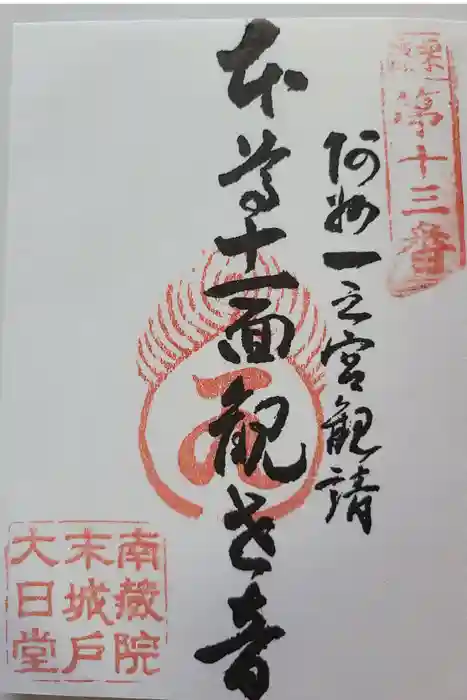 篠栗
第十三番
阿州一之宮観請
本尊十一面観世音
南蔵院
末城戸
大日堂